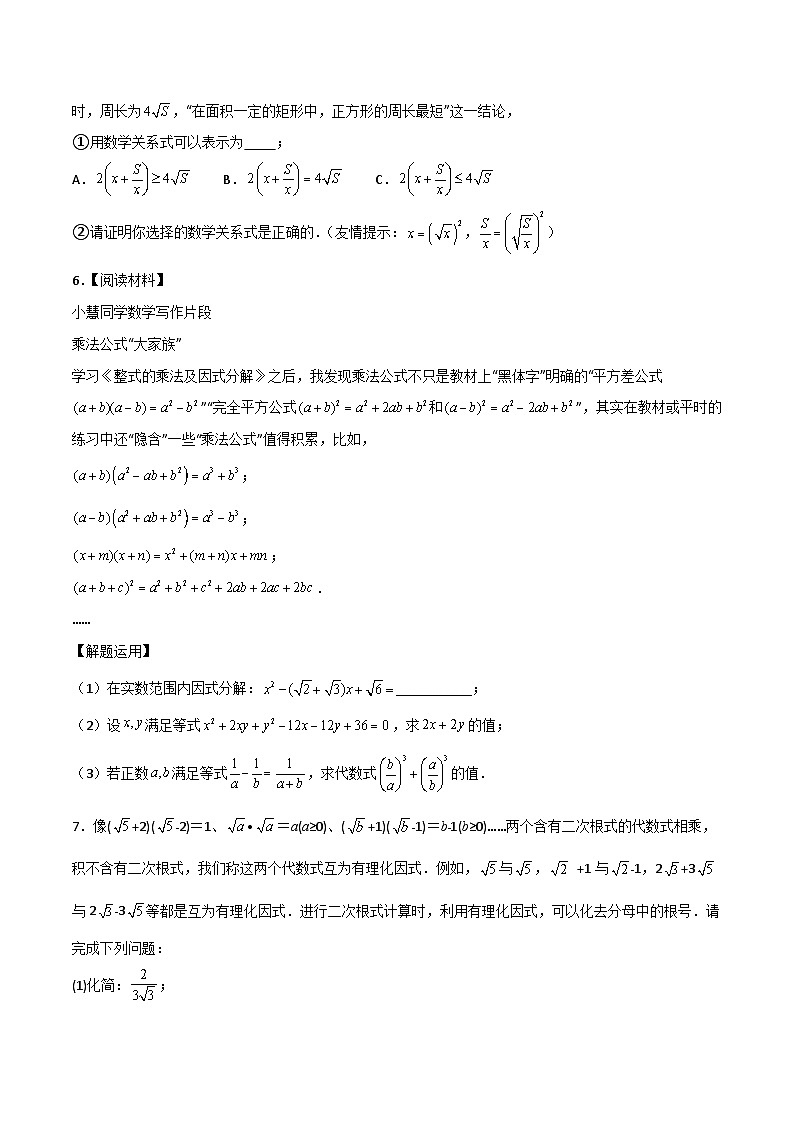 时，周长为4√S，“在面积一定的矩形中，正方形的周长最短”这一结论，
①用数学关系式可以表示为____；
A．2(x+S/x)≥4√S B．2(x+S/x)=4√S C．2(x+S/x)≤4√S
②请证明你选择的数学关系式是正确的.（友情提示：x=(√x)²，S/x=(√(S/x))²）
6.【阅读材料】
小慧同学数学写作片段
乘法公式“大家族”
学习《整式的乘法及因式分解》之后，我发现乘法公式不只是教材上“黑体字”明确的“平方差公式
(a+b)(a−b)=a²−b²”“完全平方公式(a+b)²=a²+2ab+b²和(a−b)²=a²−2ab+b²”，其实在教材或平时的
练习中还“隐含”一些“乘法公式”值得积累，比如，
(a+b)(a²−ab+b²)=a³+b³；
(a−b)(a²+ab+b²)=a³−b³；
(x+m)(x+n)=x²+(m+n)x+mn；
(a+b+c)²=a²+b²+c²+2ab+2ac+2bc．
……
【解题运用】
（1）在实数范围内因式分解：x²−(√2+√3)x+√6=__________；
（2）设x,y满足等式x²+2xy+y²−12x−12y+36=0，求2x+2y的值；
（3）若正数a,b满足等式1/a−1/b=1/(a+b)，求代数式(b/a)³+(a/b)³的值．
7．像(√5+2)(√5-2)＝1、√a•√a＝a(a≥0)、(√b+1)(√b-1)＝b-1(b≥0)……两个含有二次根式的代数式相乘，
积不含有二次根式，我们称这两个代数式互为有理化因式．例如，√5与√5，√2 +1与√2-1，2√3+3√5
与2√3-3√5等都是互为有理化因式．进行二次根式计算时，利用有理化因式，可以化去分母中的根号．请
完成下列问题：
(1)化简：2/(3√3)；